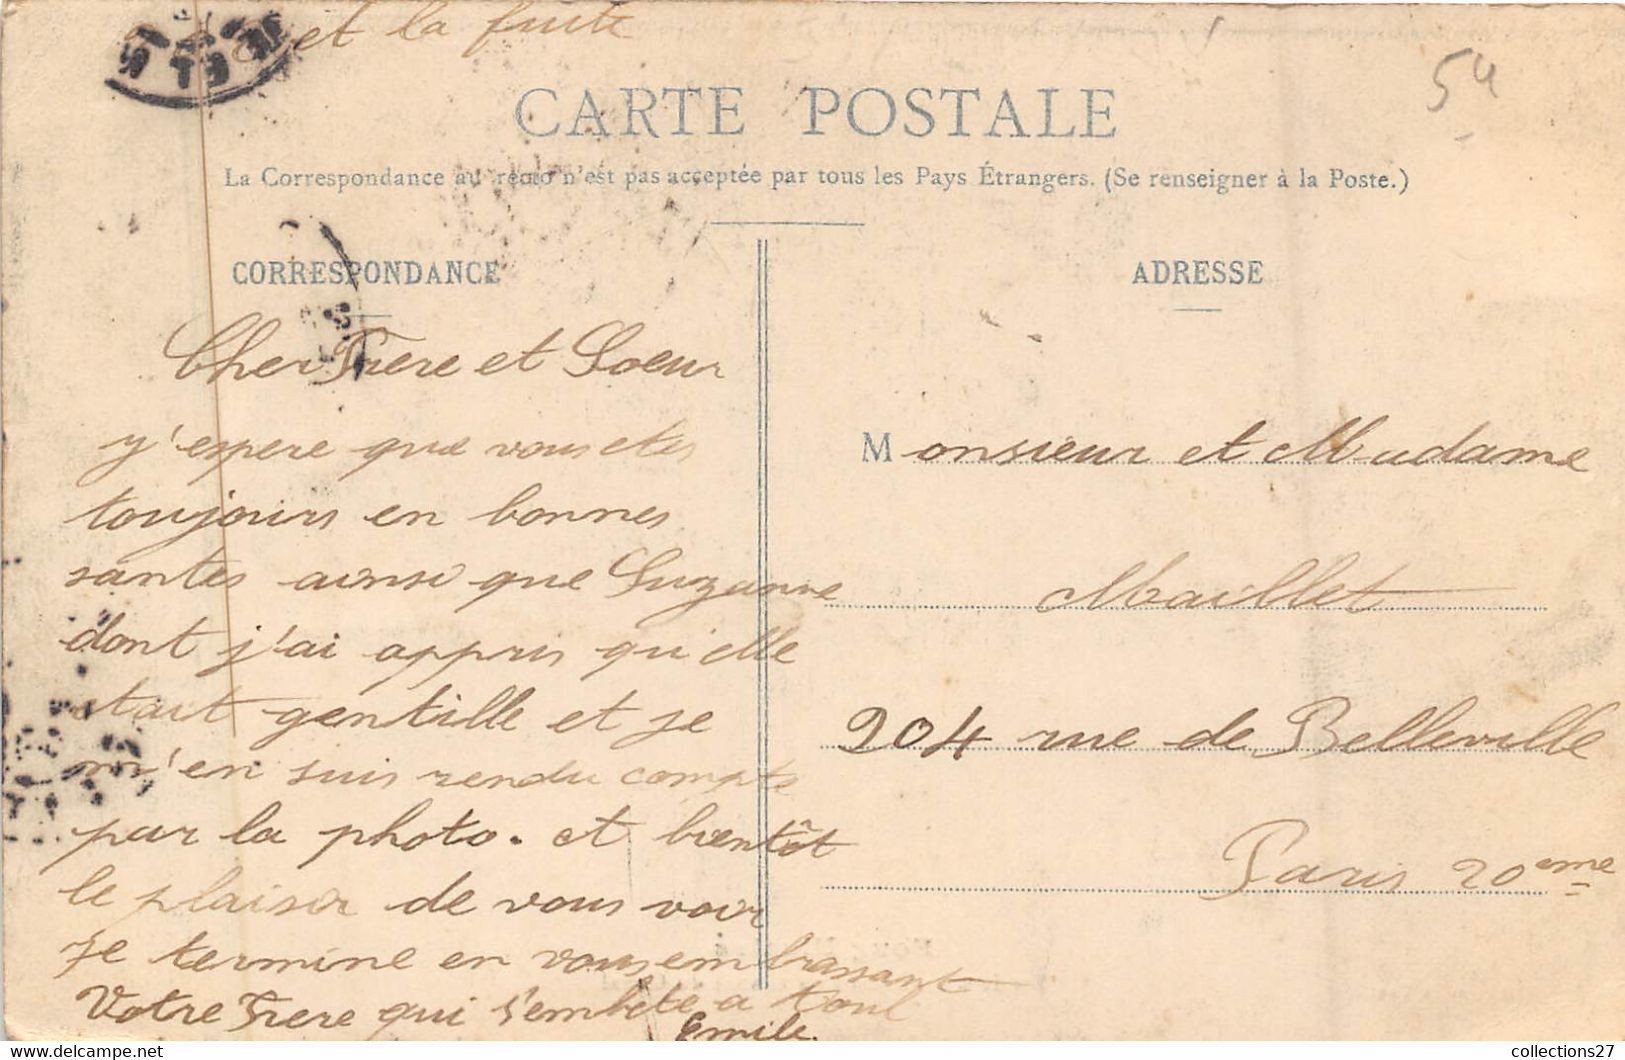 et la fuite
54
CARTE POSTALE
La Correspondance au recto n'est pas acceptée par tous les Pays Étrangers. (Se renseigner à la Poste.)
CORRESPONDANCE
Cher Frere et Soeur
y'espere que vous etes
toujours en bonnes
santes ainsi que Suzanne
dont j'ai appris qu'elle
etait gentille et je
m'en suis rendu compte
par la photo. et bientôt
le plaisir de vous voir
je termine en vous embrassant
Votre Frere qui s'embete a Toul
Emile.
ADRESSE
Monsieur et Madame
Maillet
204 rue de Belleville
Paris 20eme
collections27